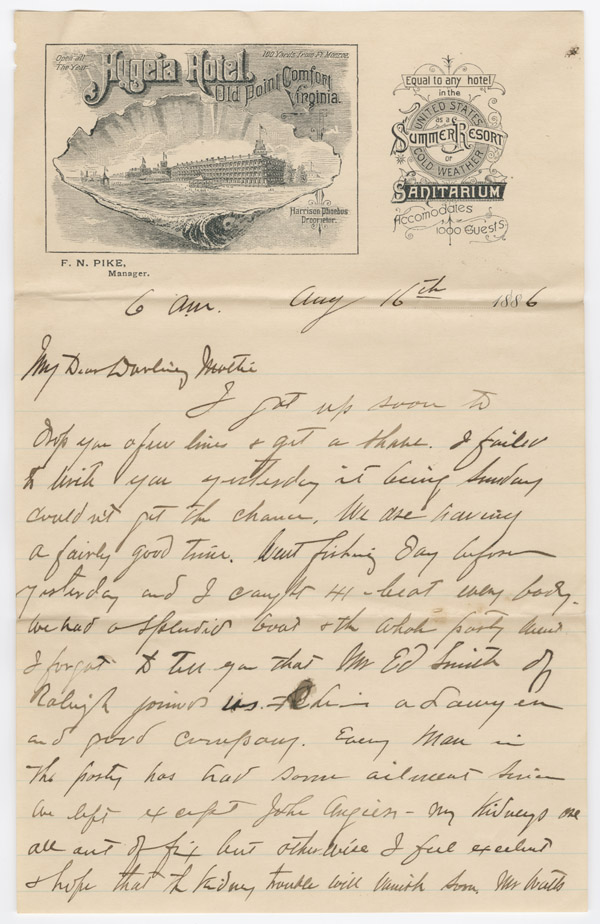 Open all
The Year.
100 Yards from Ft Monroe.
Hygeia Hotel,
Old Point Comfort
Virginia.
Harrison Phoebus
Proprietor.
F. N. PIKE,
Manager.
Equal to any hotel
in the
UNITED STATES
as a
SUMMER RESORT
or
COLD WEATHER
SANITARIUM
Accomodates
1000 Guests.
6 am. Aug 16th 1886
My Dear Darling Mattie
I got up soon to
Drop you a few lines & get a shave. I failed
to write you yesterday it being Sunday
couldn't get the chance. We are having
a fairly good time. Went fishing day before
yesterday and I caught 41 - beat every body.
We had a splendid boat & the whole party went
I forgot to tell you that Mr Ed Smith of
Raleigh joined us. He is a Lawyer
and good company. Every Man in
the party has had some ailment since
we left except John Angier - my Kidneys are
all out of fix but otherwise I feel excelent
& hope that the Kidney trouble will vanish soon. Mr Watts